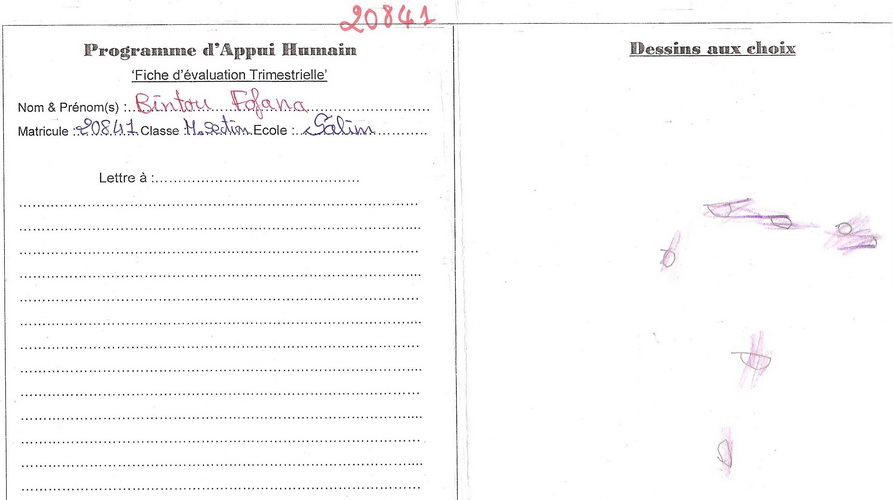 20841
Programme d'Appui Humain
'Fiche d'évaluation Trimestrielle'
Nom & Prénom(s) :..Bintou Fofana..................
Matricule :20841 Classe M.section Ecole : ..Salim..........
Lettre à :..........................................
Dessins aux choix